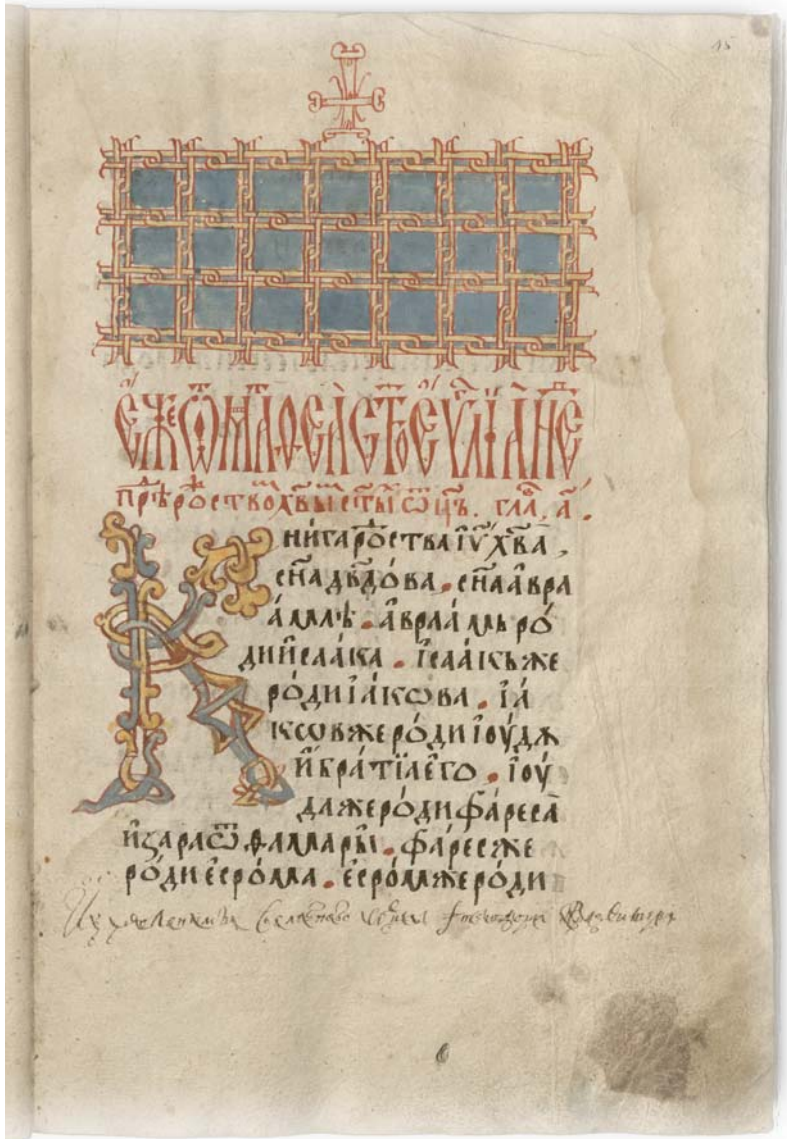 15
Є҆́же ѿ маⷮѳеа ст҃ое єу҆аⷢ҇лїе
прⷣѣ роⷤство хв҃ыⷨ ст҃ыⷯ ѿц҃ъ. глаⷡ, а҃.
Книга роⷤства і҆у҃ хв҃а,
сн҃а дв҃дова. сн҃а а҆вра
а҆́млѣ. а҆враа́мь ро́
ди и҆саа́ка. і҆саа́кь же
ро́ди і҆а́кѡва. і҆а́
кѡв же ро́ди і҆оу́дѫ
и҆ бра́тїа є҆го̀. і҆оу́
да же ро́ди фа́реса
и҆ зара ѿ ѳамары̀. фа́рес же
ро́ди є҆сро́ма. є҆сро́м же ро́ди